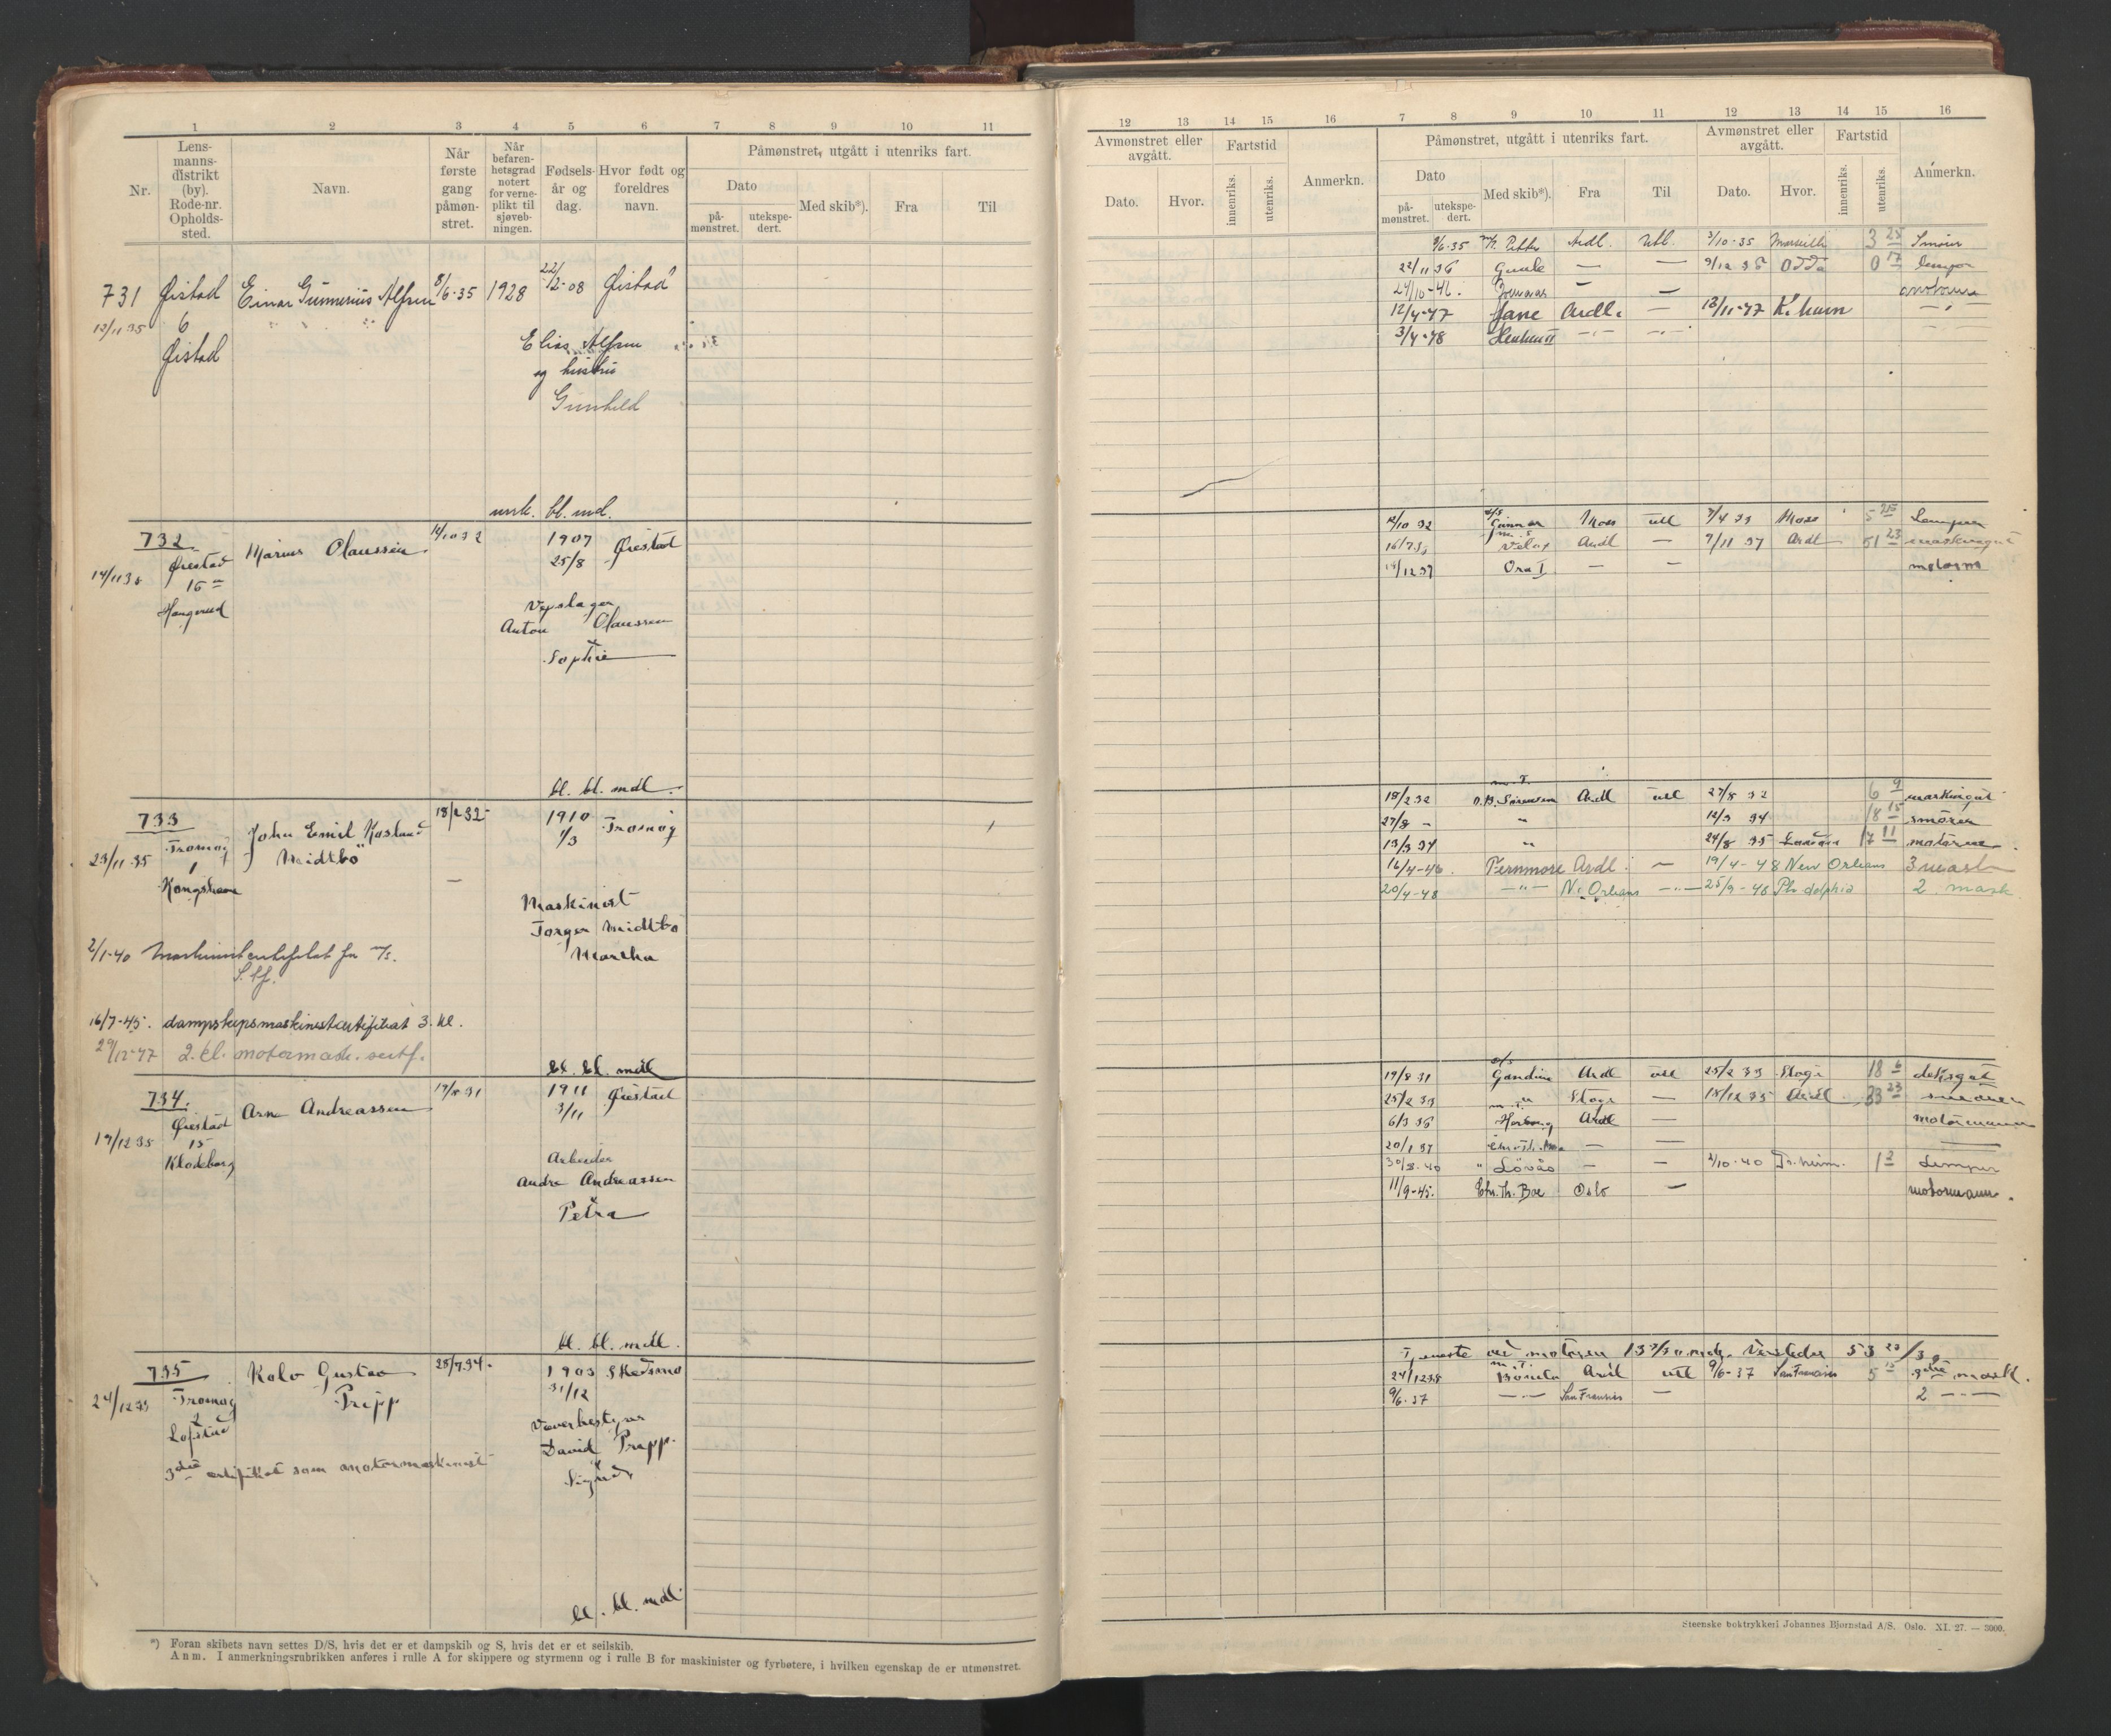 1 2 3 4 5 6 7 8 9 10 11
Nr.
Lens-
manns-
distrikt
(by).
Rode-nr.
Opholds-
sted.
Navn.
Når
første
gang
påmøn-
stret.
Når
befaren-
hetsgrad
notert
for verne-
plikt til
sjøveb-
ningen.
Fødsels-
år og
dag.
Hvor født og
foreldres
navn.
Påmønstret, utgått i utenriks fart.
Dato
på-
mønstret.
utekspe-
dert.
Med skib*).
Fra
Til
731 Øistad Einar Gunnerius Alfsen 8/6-35 1928 22/12-08 Øistad
13/11 35 6
Øistad
Elias Alfsen
og hustru
Gunhild
urrk. bl. md.
732 Marius Olaussen 14/10 32 1907 Øiestad
14/11 35 Øiestad 25/8
15
Haugerud
Anton Olaussen
Sophie
bl. bl. mdl.
733 John Emil Kosland 18/2 32 1910 Tromøy
Tromøy Meidtbø 1/3
23/11 35 1
Kongshavn
Maskinist
Torger Meidtbø
Martha
2/1-40 Maskinistcertifikat for
16/7-45. dampskipsmaskinistcertifikat 3. kl.
29/12-47 2. kl. motormask. sertf.
bl. bl. mdl
734. Arne Andreassen 19/8 31 1911 Øiestad
Øiestad 3/11
19/12 35 15
Klodeborg
Arbeider
Andre Andreassen
Petra
bl. bl. mdl.
735 Rolv Gustav 25/7 34. 1903 Skedsmo
24/12 35 Tromøy Pripp 31/12
2
Løfstad
David Pripp.
Sigrid
3die certifikat som motormaskinist
bl. bl. mdl
*) Foran skibets navn settes D/S, hvis det er et dampskib og S, hvis det er et seilskib.
Anm. I anmerkningsrubrikken anføres i rulle A for skippere og styrmenn og i rulle B for maskinister og fyrbøtere, i hvilken egenskap de er utmønstret.
12 13 14 15 16 7 8 9 10 11 12 13 14 15 16
Avmønstret eller
avgått.
Dato.
Hvor.
Fartstid
innenriks.
utenriks.
Anmerkn.
Påmønstret, utgått i utenriks fart.
Dato
på-
mønstret.
utekspe-
dert.
Med skib*).
Fra
Til
Avmønstret eller
avgått.
Dato.
Hvor.
Fartstid
innenriks.
utenriks.
Anmerkn.
8/6-35 Petter Ardl. Utl. 3/10-35 Marseille 3 25 Smører
22/11 36 — — 9/12 36 Odda 0 17 Lemper
24/10-46. — —
12/4-47 Jane Ardl. — 13/11-47 K.havn
3/4-48
14/10 32 Gunnar Moss utl 7/4 33 Moss 5 Lemper
Velox Ardl — 7/11 37 Ardl 51 23 maskingut
/12 37 Ora I — — motorm
m.T.
18/2 32 O.B. Sørensen Ardl utl 27/8 32 6 9 maskingut
27/8 - " 12/3 34 18 15 smører
13/3 34 " 24/8 35 London 17 11 motorm.
16/4-46. Fernmore Ardl. — 19/4-48 New Orleans 3 mask
20/4-48 —"— N. Orleans —"— 25/9-48 Ph.delphia 2. mask
19/8 31 Gondia Ardl utl 25/2 33 18 6 deksgut
25/2 33 " — 18/12 35 Ardl. 33 23
6/3 36 Ardl — motormann
20/1 37 — —
30/8-40 " Løvås — — 2/10-40 Tr.heim. 1 2 Lemper
11/9-45. Chr. Th. Boe Oslo — motormann.
m.T.
24/12 35 Ardl utl 9/6-37 San Francisco 5 3die mask.
9/6.37 —"— — 2 —"—
Steenske boktrykkeri Johannes Bjørnstad A/S. Oslo. XI. 27. — 3000.